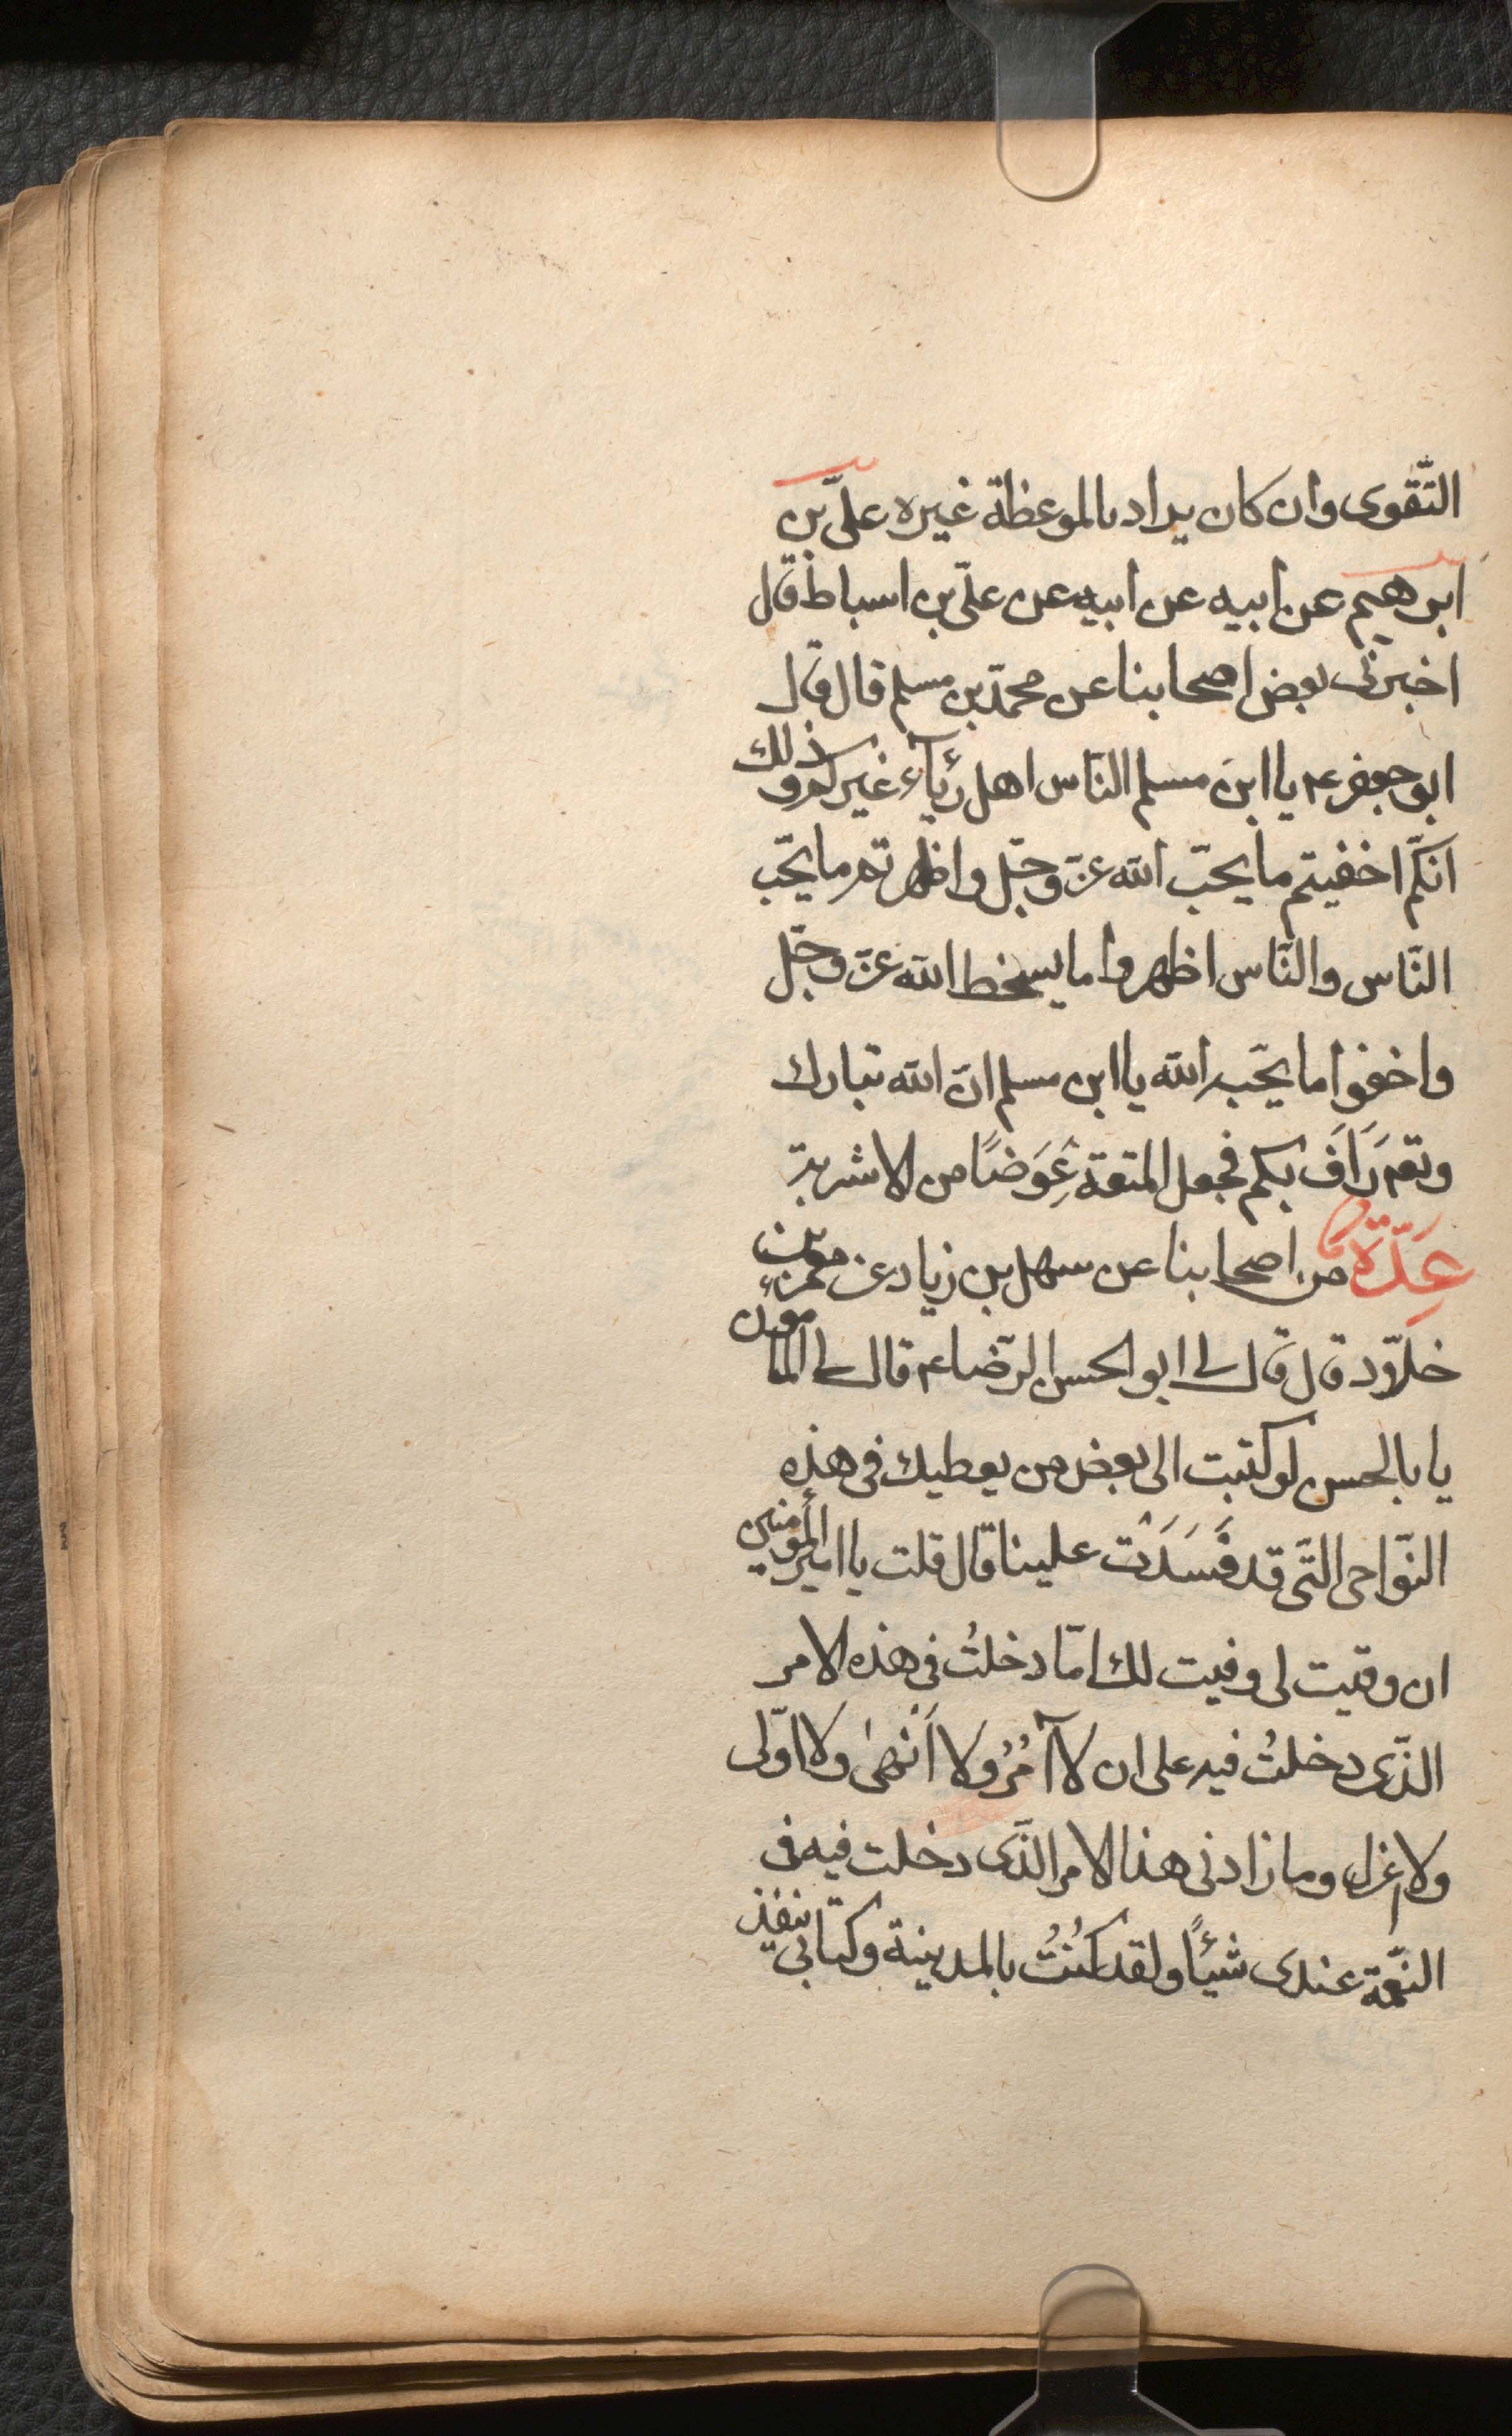 التّقوى وان كان يراد بالموعظة غيره علىّ بن
ابرهيم عن ابيه عن ابيه عن علىّ بن اسباط قال
اخبرنى بعض اصحابنا عن محمّد بن مسلم قال قال
ابو جعفر عم يا ابن مسلم النّاس اهل رئآء غيركم وذلك
انكّم اخفيتم ما يحبّ الله عزّ وجّل واظهرتم ما يحّب
النّاس والنّاس اظهروا ما يسخط الله عزّ وجّل
واخفوا ما يحّبه الله يا ابن مسلم انّ الله تبارك
وتعم رَاَفَ بكم فجعل المتعة عِوَضًا من الاشربة
عِدّة من اصحابنا عن سهل بن زياد عن معمّر بن
خلاّد قال قال لى ابو الحسن الرّضا عم قال لى المأمون
يا با لحسن لو كتبت الى بعض من يعطيك فى هذه
النّواحى التّى قد فَسَدَتْ علينا قال قلت يا امير المؤمنين
ان وقيت لى وفيت لك امّا دخلتُ فى هذه الامر
الذّى دخلتُ فيه على ان لا آمُرُ ولا اَنْهىٰ ولا اوّلى
ولا اعزل وما زادنى هذا الامر الذّى دخلت فيه فى
النّعمة عندى شيئًا ولقد كُنْتُ بالمدينة وكتابى ينفذ